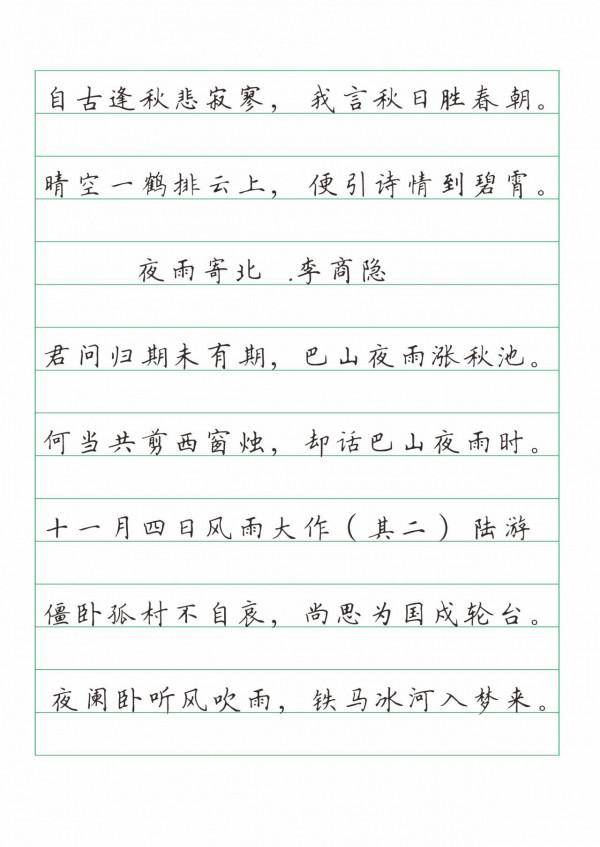 自古逢秋悲寂寥，我言秋日胜春朝。
晴空一鹤排云上，便引诗情到碧霄。
夜雨寄北 .李商隐
君问归期未有期，巴山夜雨涨秋池。
何当共剪西窗烛，却话巴山夜雨时。
十一月四日风雨大作（其二）陆游
僵卧孤村不自哀，尚思为国戍轮台。
夜阑卧听风吹雨，铁马冰河入梦来。